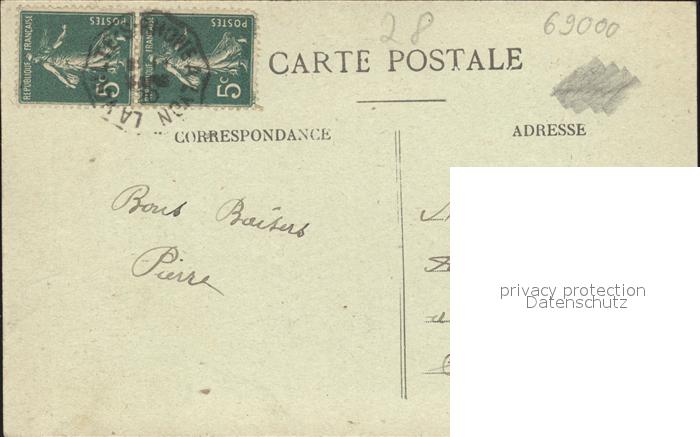 28
69000
CARTE POSTALE
RÉPUBLIQUE FRANÇAISE
POSTES
5c
RÉPUBLIQUE FRANÇAISE
POSTES
5c
CORRESPONDANCE
ADRESSE
Bons Baisers
Pierre
privacy protection
Datenschutz